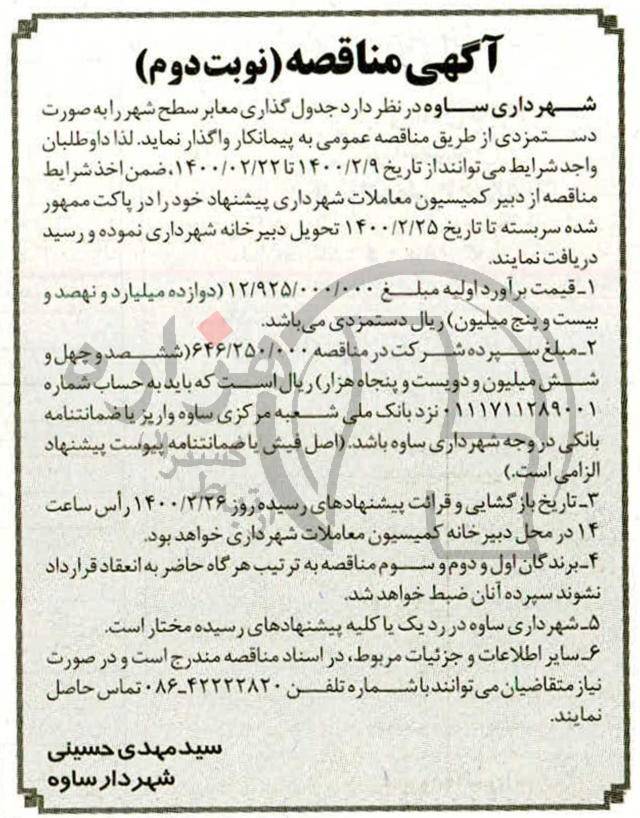 آگهی مناقصه (نوبت دوم)
شهرداری ساوه در نظر دارد جدول گذاری معابر سطح شهر را به صورت
دستمزدی از طریق مناقصه عمومی به پیمانکار واگذار نماید. لذا داوطلبان
واجد شرایط می‌توانند از تاریخ ۱۴۰۰/۲/۹ تا ۱۴۰۰/۰۲/۲۲، ضمن اخذ شرایط
مناقصه از دبیر کمیسیون معاملات شهرداری پیشنهاد خود را در پاکت ممهور
شده سربسته تا تاریخ ۱۴۰۰/۲/۲۵ تحویل دبیرخانه شهرداری نموده و رسید
دریافت نمایند.
۱ـ قیمت برآورد اولیه مبلغ ۱۲/۹۲۵/۰۰۰/۰۰۰ (دوازده میلیارد و نهصد و
بیست و پنج میلیون) ریال دستمزدی می‌باشد.
۲ـ مبلغ سپرده شرکت در مناقصه ۶۴۶/۲۵۰/۰۰۰ (ششصد و چهل و
شش میلیون و دویست و پنجاه هزار) ریال است که باید به حساب شماره
۰۱۱۱۷۱۱۲۸۹۰۰۱ نزد بانک ملی شعبه مرکزی ساوه واریز یا ضمانتنامه
بانکی در وجه شهرداری ساوه باشد. (اصل فیش یا ضمانتنامه پیوست پیشنهاد
الزامی است.)
۳ـ تاریخ بازگشایی و قرائت پیشنهادهای رسیده روز ۱۴۰۰/۲/۲۶ رأس ساعت
۱۴ در محل دبیرخانه کمیسیون معاملات شهرداری خواهد بود.
۴ـ برندگان اول و دوم و سوم مناقصه به ترتیب هرگاه حاضر به انعقاد قرارداد
نشوند سپرده آنان ضبط خواهد شد.
۵ـ شهرداری ساوه در رد یک یا کلیه پیشنهادهای رسیده مختار است.
۶ـ سایر اطلاعات و جزئیات مربوط، در اسناد مناقصه مندرج است و در صورت
نیاز متقاضیان می‌توانند با شماره تلفن ۴۲۲۲۲۸۲۰ـ۰۸۶ تماس حاصل
نمایند.
سید مهدی حسینی
شهردار ساوه